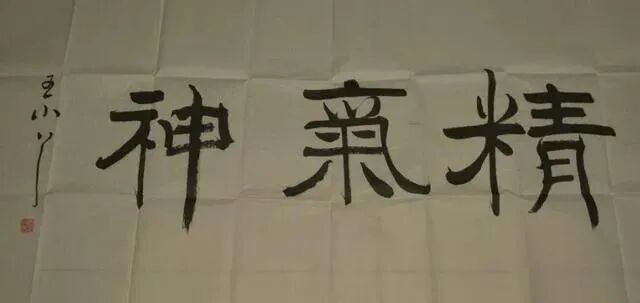 精氣神
王小丫